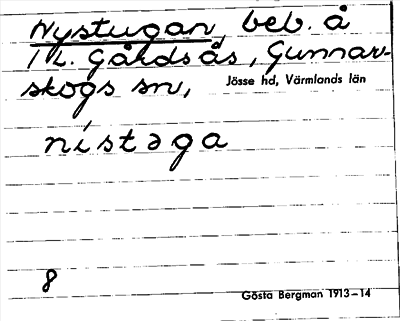 Nystugan, beb. å
1/2. Gårdsås, Gunnar-
skogs sn, Jösse hd, Värmlands län
nístəga
8
Gösta Bergman 1913–14